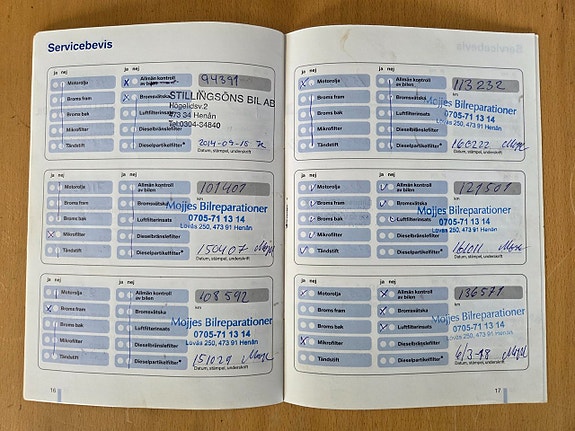 Servicebevis
ja nej ja nej
Motorolja
Allmän kontroll av bilen
94391
Broms fram
Bromsvätska
km
STILLINGSÖNS BIL AB
Högelidsv.2
Broms bak
Luftfilterinsats
473 34 Henån
Tel:0304-34840
Mikrofilter
Dieselbränslefilter
Tändstift
Dieselpartikelfilter*
2014-09-15
Datum, stämpel, underskrift
ja nej ja nej
Motorolja
Allmän kontroll av bilen
101401
Broms fram
Bromsvätska
Mojjes Bilreparationer
Broms bak
Luftfilterinsats
0705-71 13 14
Lövås 250, 473 91 Henån
Mikrofilter
Dieselbränslefilter
Tändstift
Dieselpartikelfilter*
150407
Datum, stämpel, underskrift
ja nej ja nej
Motorolja
Allmän kontroll av bilen
108592
Broms fram
Bromsvätska
Mojjes Bilreparationer
Broms bak
Luftfilterinsats
0705-71 13 14
Lövås 250, 473 91 Henån
Mikrofilter
Dieselbränslefilter
Tändstift
Dieselpartikelfilter*
151029
Datum, stämpel, underskrift
16
ja nej ja nej
Motorolja
Allmän kontroll av bilen
113232
km
Broms fram
Bromsvätska
Mojjes Bilreparationer
Broms bak
Luftfilterinsats
0705-71 13 14
Lövås 250, 473 91 Henån
Mikrofilter
Dieselbränslefilter
Tändstift
Dieselpartikelfilter*
160222
Datum, stämpel, underskrift
ja nej ja nej
Motorolja
Allmän kontroll av bilen
121501
Broms fram
Bromsvätska
Mojjes Bilreparationer
Broms bak
Luftfilterinsats
0705-71 13 14
Lövås 250, 473 91 Henån
Mikrofilter
Dieselbränslefilter
Tändstift
Dieselpartikelfilter*
161011
Datum, stämpel, underskrift
ja nej ja nej
Motorolja
Allmän kontroll av bilen
136571
km
Broms fram
Bromsvätska
Mojjes Bilreparationer
Broms bak
Luftfilterinsats
0705-71 13 14
Lövås 250, 473 91 Henån
Mikrofilter
Dieselbränslefilter
Tändstift
Dieselpartikelfilter*
6/3-18
Datum, stämpel, underskrift
17